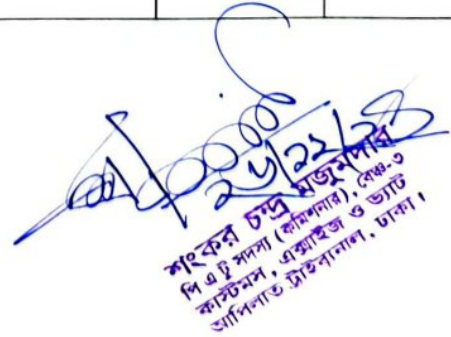 শংকর চন্দ্র মজুমদার
পি এ টু সদস্য (কমিশনার), বেঞ্চ-৩
কাস্টমস, এক্সাইজ ও ভ্যাট
আপিলাত ট্রাইবানাল, ঢাকা।